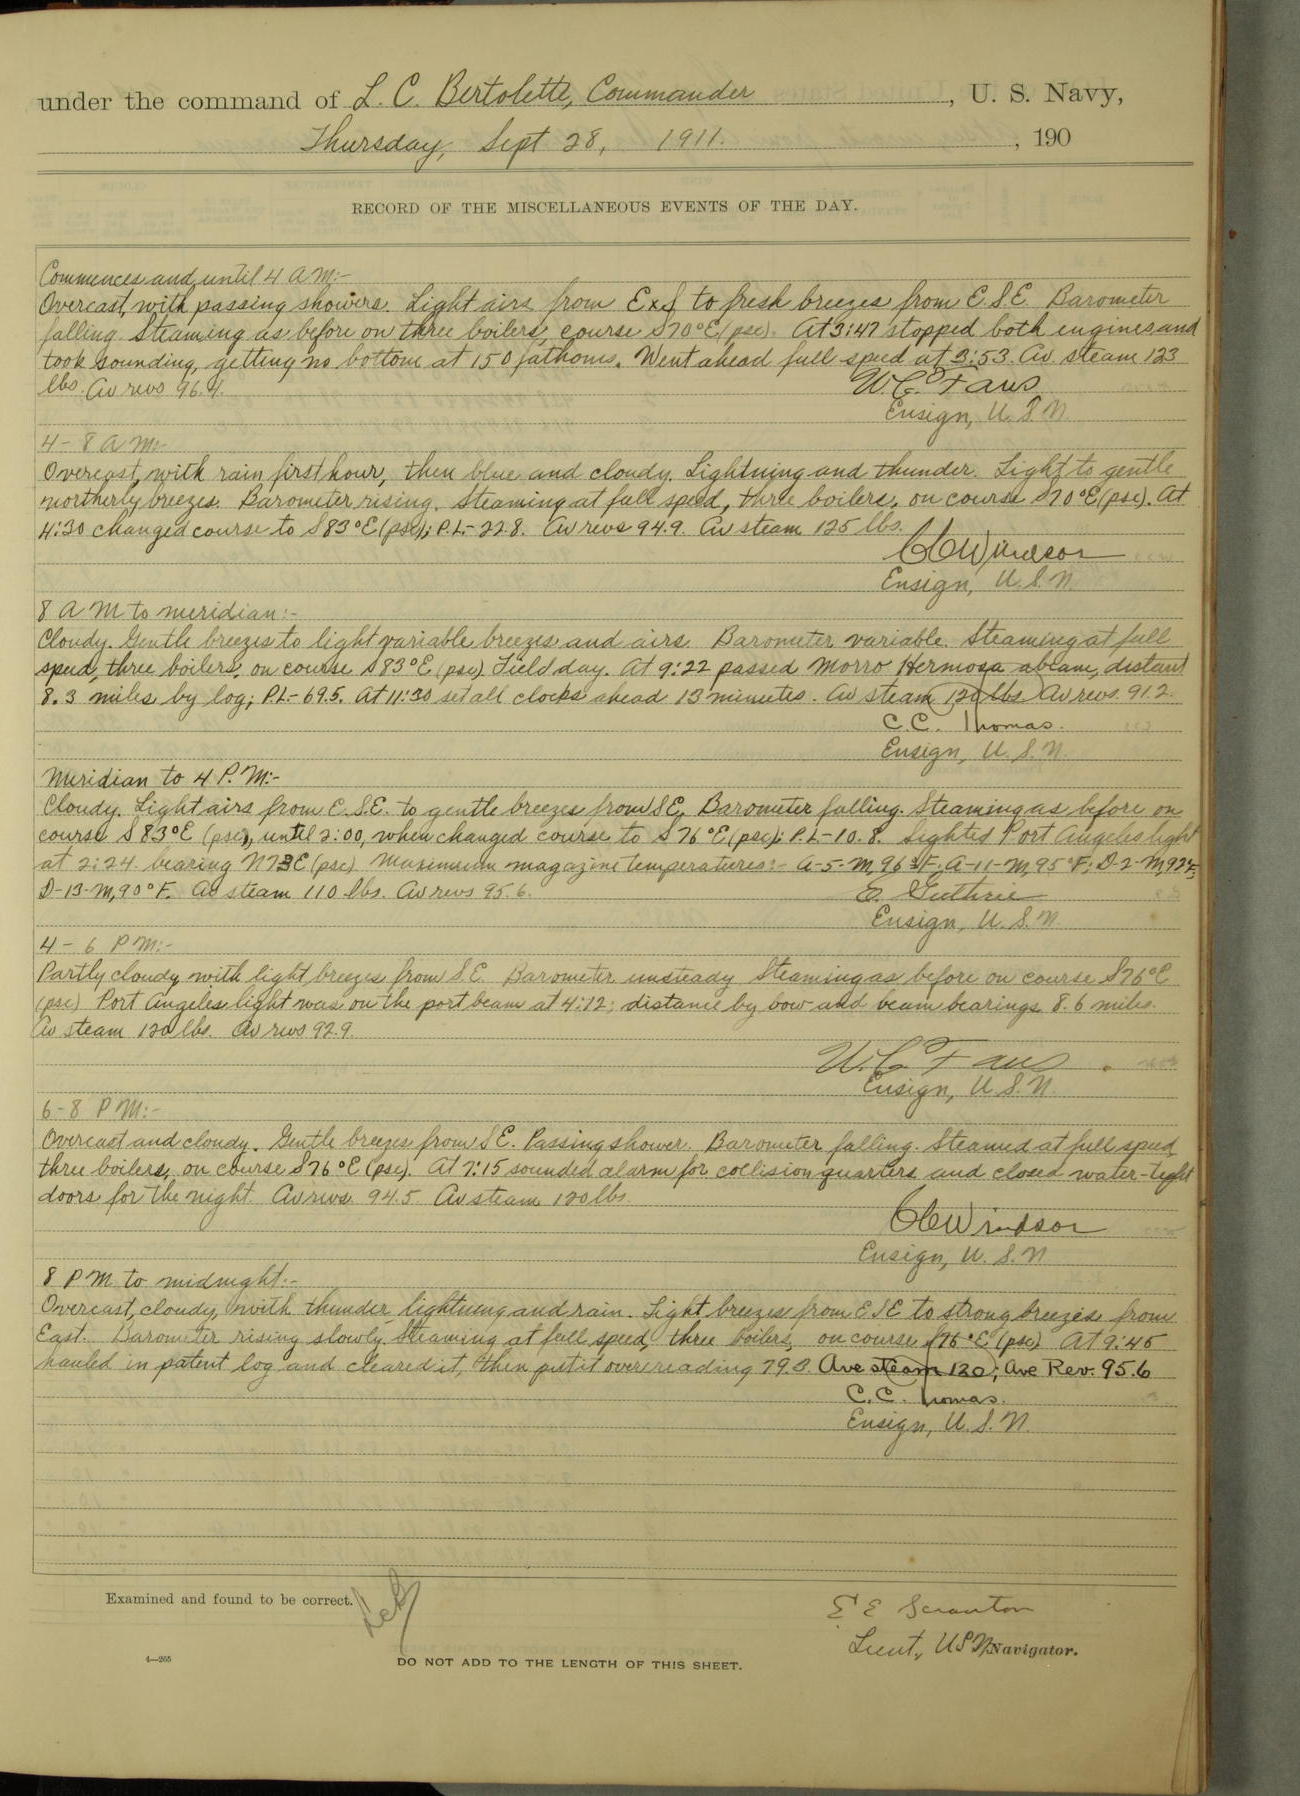 under the command of L. C. Bertolette, Commander, U. S. Navy,
Thursday, Sept 28, 1911., 190
RECORD OF THE MISCELLANEOUS EVENTS OF THE DAY.
Commences and until 4 A M:-
Overcast, with passing showers. Light airs from ExS to fresh breezes from E.S.E. Barometer
falling. Steaming as before on three boilers, course S70°E (psc). At 3:47 stopped both engines and
took sounding, getting no bottom at 150 fathoms. Went ahead full speed at 3:53. Av steam 123
lbs. Av revs 96.4.
W. C. Faus
Ensign, U. S. N.
4 - 8 A M:-
Overcast, with rain first hour, then blue and cloudy. Lightning and thunder. Light to gentle
northerly breezes. Barometer rising. Steaming at full speed, three boilers, on course S70°E (psc). At
4:30 changed course to S83°E (psc); P.L.-22.8. Av revs 94.9. Av steam 125 lbs.
CCWindsor
Ensign, U. S. N.
8 A M to meridian:-
Cloudy. Gentle breezes to light variable breezes and airs. Barometer variable. Steaming at full
speed, three boilers, on course S83°E (psc) Field day. At 9:22 passed Morro Hermosa abeam, distant
8.3 miles by log; P.L.-69.5. At 11:30 set all clocks ahead 13 minutes. Av steam 120 lbs. Av revs. 91.2.
C. C. Thomas.
Ensign, U. S. N.
Meridian to 4 P. M:-
Cloudy. Light airs from E.S.E. to gentle breezes from S.E. Barometer falling. Steaming as before on
course S83°E (psc), until 2:00, when changed course to S76°E (psc); P.L-10.8. Sighted Port Angeles light
at 2:24 bearing N73E (psc) Maximum magazine temperatures:- A-5-M, 96°F; A-11-M, 95°F; D-2-M, 92°F;
D-13-M, 90°F. Av steam 110 lbs. Av revs 95.6.
E. Guthrie
Ensign, U. S. N.
4 - 6 P M:-
Partly cloudy with light breezes from S.E. Barometer unsteady Steaming as before on course S76°E
(psc) Port Angeles light was on the port beam at 4:12; distance by bow and beam bearings 8.6 miles.
Av steam 120 lbs. Av revs 92.9.
W. C. Faus
Ensign, U. S. N.
6 - 8 P M:-
Overcast and cloudy. Gentle breezes from S E. Passing shower. Barometer falling. Steamed at full speed,
three boilers, on course S76°E (psc). At 7:15 sounded alarm for collision quarters and closed water-tight
doors for the night. Av revs. 94.5. Av steam 120 lbs.
CCWindsor
Ensign, U. S. N
8 P M to midnight:-
Overcast, cloudy, with thunder, lightning and rain. Light breezes from E S E to strong breezes from
East. Barometer rising slowly. Steaming at full speed, three boilers, on course S76°E (psc) At 9:45
hauled in patent log and cleared it, then put it over reading 79.3. Ave steam 120; Ave Rev. 95.6
C. C. Thomas.
Ensign, U. S. N.
Examined and found to be correct.
E E Scranton
Lieut., U S N, Navigator.
4—265
DO NOT ADD TO THE LENGTH OF THIS SHEET.